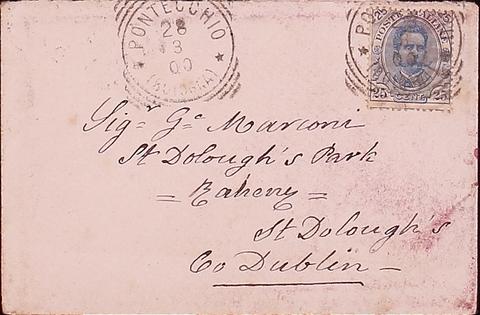 PONTECCHIO
28
3
00
(BOLOGNA)
POSTE ITALIANE
25 CENT. 25
Sig= Ge Marconi
St Dolough's Park
= Raheny =
St Dolough's
Co Dublin -